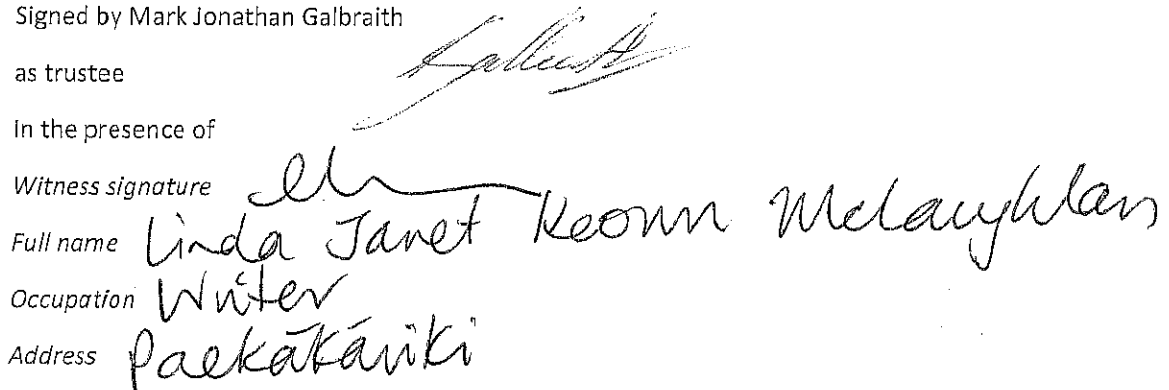 Signed by Mark Jonathan Galbraith
as trustee
In the presence of
Witness signature
Full name Linda Janet Keown McLaughlan
Occupation Writer
Address Paekākāriki